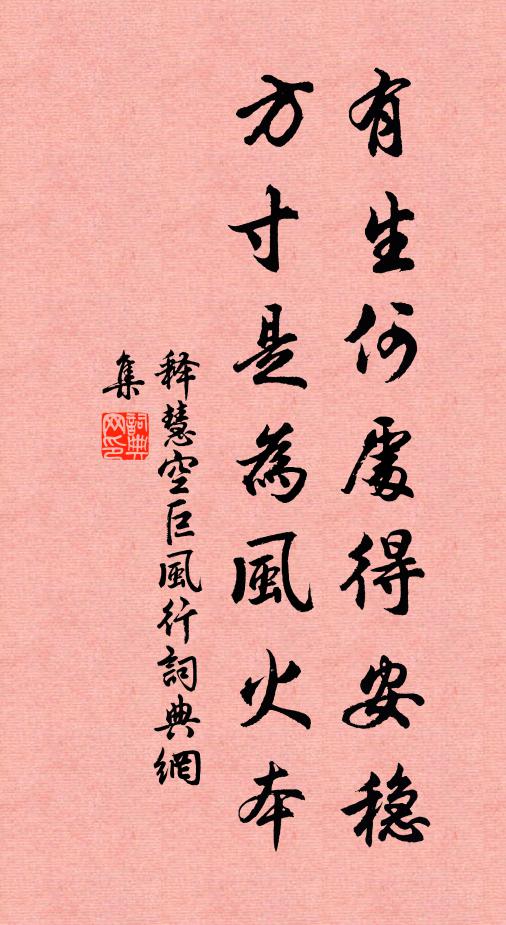 有生何處得安穏
方寸是為風火本
释慧空巨風行詞典網
集
詞典
网印